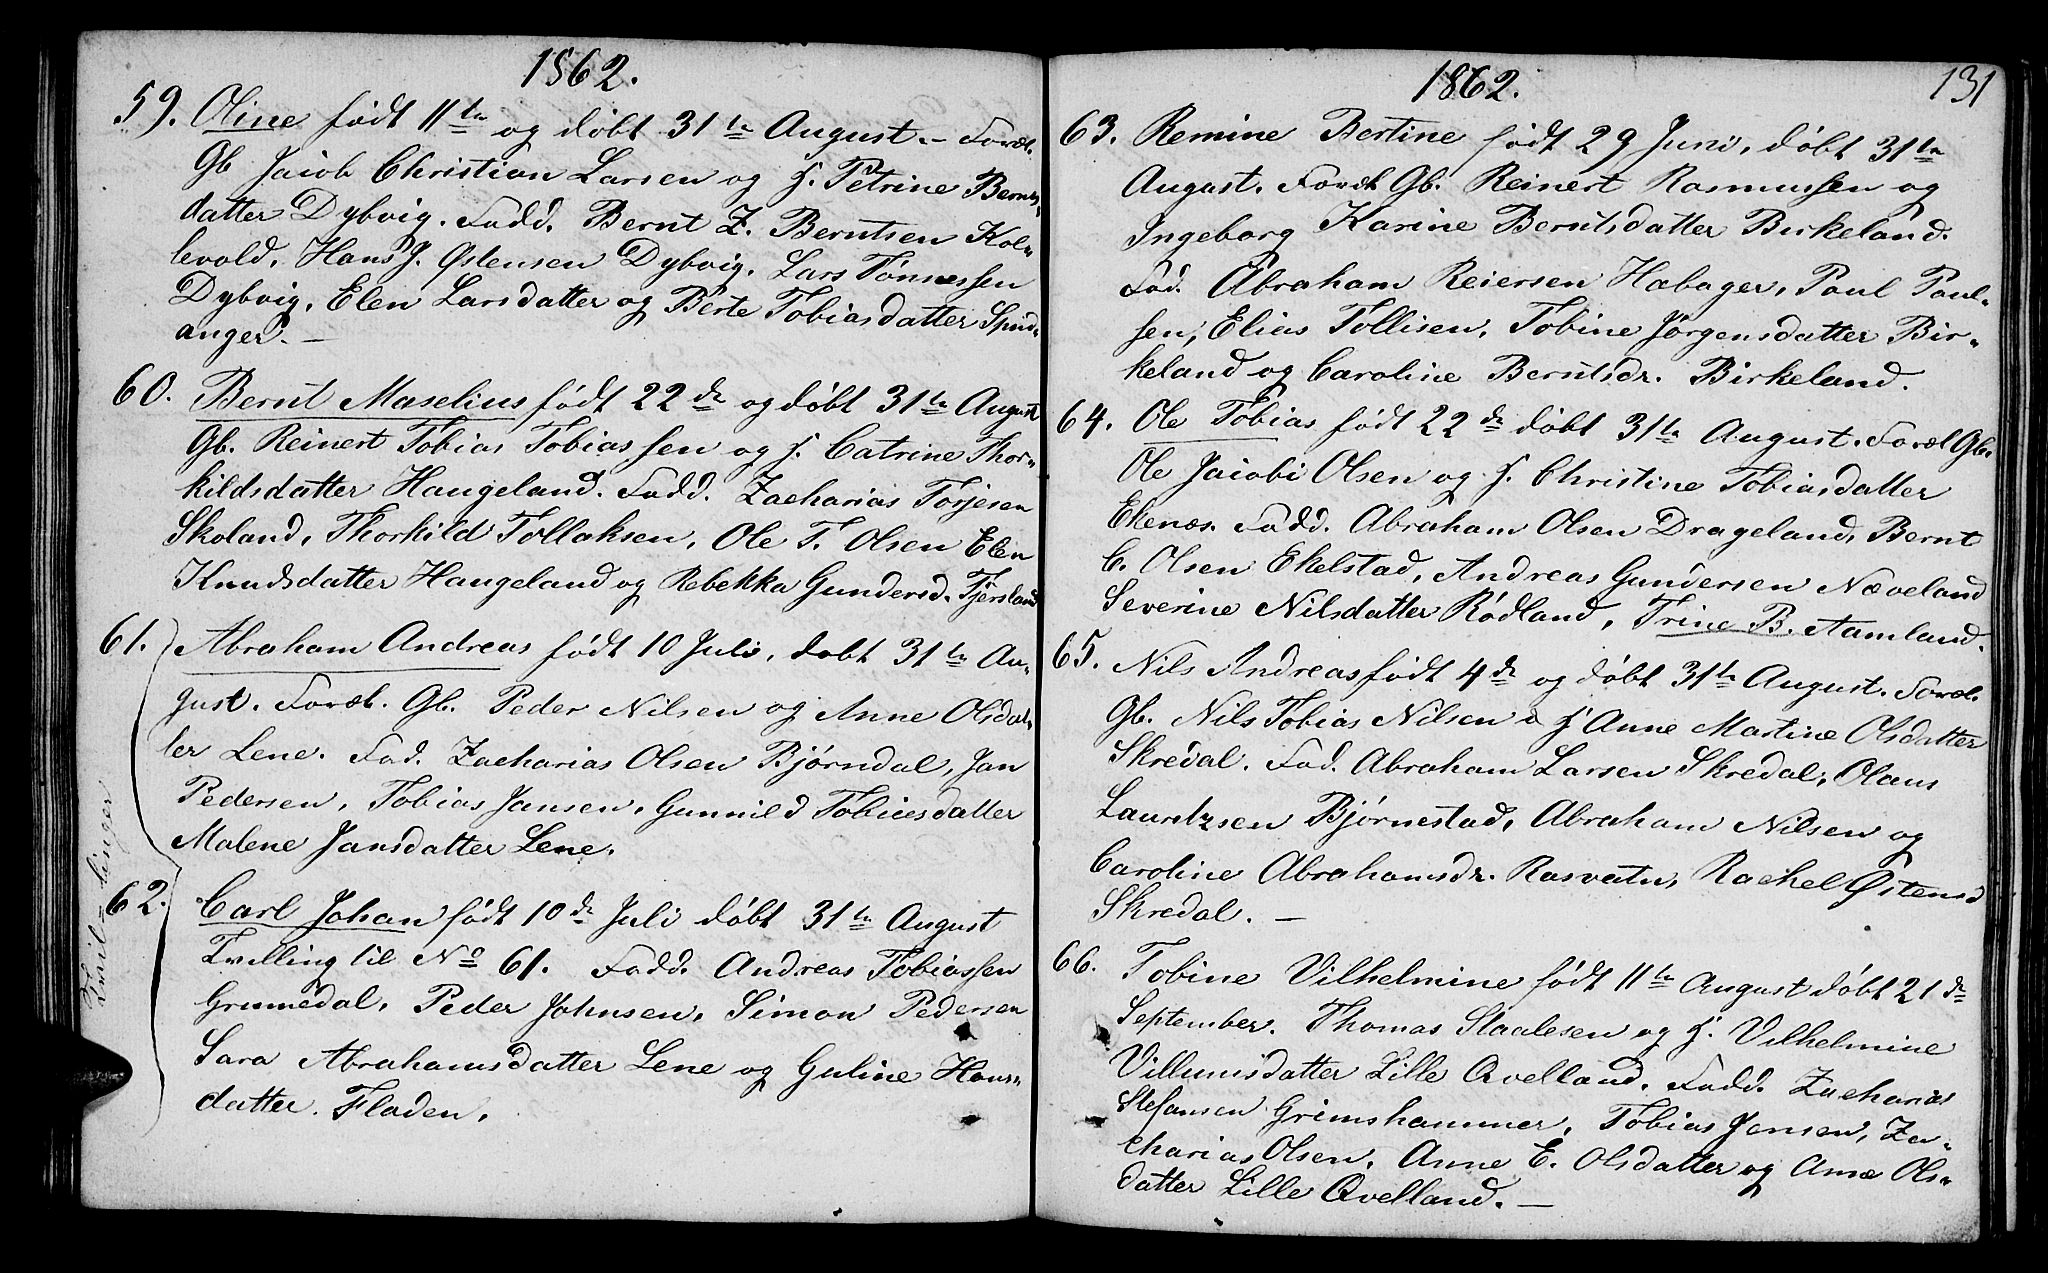 1862.
59. Oline født 11te og døbt 31te August. – Foræl.
Gb Jacob Christian Larsen og H. Petrine Bernts-
datter Dybvig. Fadd. Bernt Z. Berntsen Kol-
levold, Hans J. Østensen Dybvig, Lars Tønnessen
Dybvig, Elen Larsdatter og Berte Tobiasdatter Spind-
anger. –
60. Bernt Maselius født 22de og døbt 31te August
Gb. Reinert Tobias Tobiassen og H. Catrine Thor-
kildsdatter Haugeland. Fadd. Zacharias Torjesen
Skoland, Thorkild Tollaksen, Ole T. Olsen Elen
Knudsdatter Haugeland og Rebekka Gundersd. Tjersland
61. Abraham Andreas født 10 Juli, døbt 31te Au-
gust. Foræl. Gb. Peder Nilsen og Anne Olsdat-
ter Lene. Fad. Zacharias Olsen Bjørndal, Jan
Pedersen, Tobias Jansen, Gunnild Tobiasdatter
Malene Jansdatter Lene.
Tvil-linger
62. Carl Johan født 10de Juli døbt 31te August
Tvilling til No 61. Fadd. Andreas Tobiassen
Grumedal, Peder Johnsen, Simon Pedersen
Sara Abrahamsdatter Lene og Guline Hans-
datter. Fladen.
1862.
131
63. Remine Bertine født 29 Juni, døbt 31te
August. Foræl Gb. Reinert Rasmussen og
Ingeborg Karine Berntsdatter Birkeland.
Fad. Abraham Reiersen Habager, Poul Poul-
sen, Elias Tollisen, Tobine Jørgensdatter Bir-
keland og Caroline Berntsdr. Birkeland.
64. Ole Tobias født 22de døbt 31te August. Foræl Gb.
Ole Jacobi Olsen og H. Christine Tobiasdatter
Ekenæs. Fadd. Abraham Olsen Drageland, Bernt
C. Olsen Ekelstad, Andreas Gundersen Næveland
Severine Nilsdatter Rødland, Trine B. Aamland.
65. Nils Andreas født 4de og døbt 31te August. Foræl.
Gb. Nils Tobias Nilsen o H Anne Martine Olsdatter
Skredal. Fad. Abraham Larsen Skredal, Olaus
Lauritzsen Bjørnestad, Abraham Nilsen og
Caroline Abrahamsdr. Rasvatn, Rachel Østensd
Skredal. –
66. Tobine Vilhelmine født 11te August døbt 21de
September. Thomas Staalesen og H. Vilhelmine
Villumsdatter Lille Qvelland. Fadd. Zacharias
Stefansen Grimshammer, Tobias Jensen, Za-
charias Olsen, Anne E. Olsdatter og Ane Ols-
datter Lille Qvelland. –